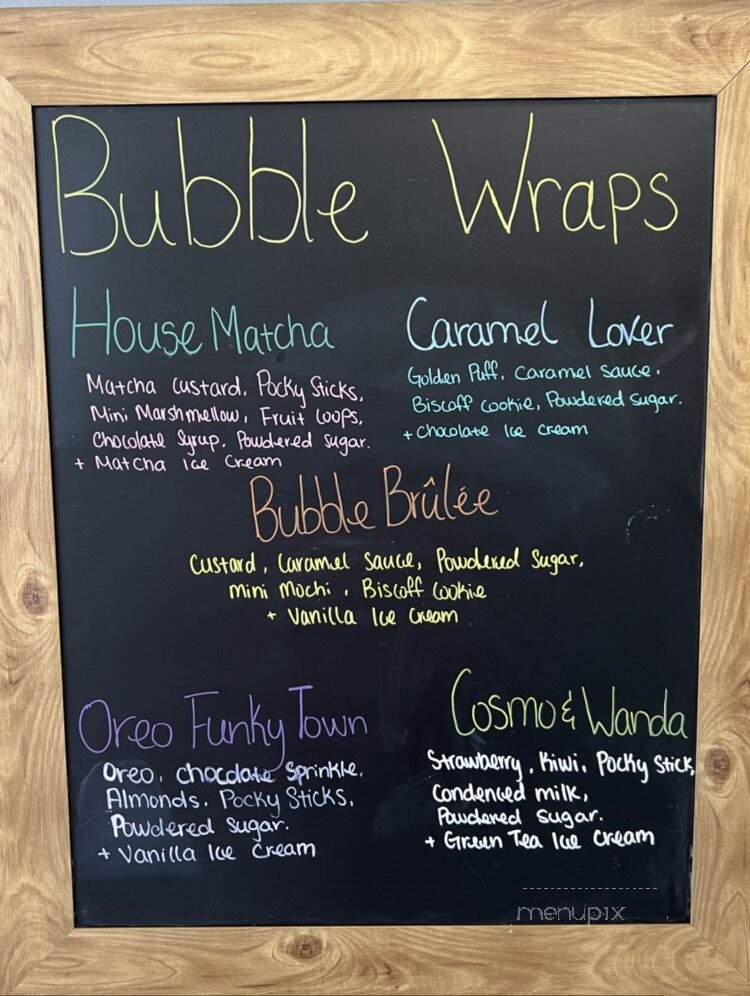 Bubble Wraps
House Matcha
Matcha custard, Pocky Sticks,
Mini Marshmellow, Fruit Loops,
Chocolate Syrup, Powdered sugar.
+ Matcha Ice Cream
Caramel Lover
Golden Puff, Caramel sauce,
Biscoff cookie, Powdered sugar.
+ Chocolate Ice cream
Bubble Brûlée
Custard, Caramel Sauce, Powdered Sugar,
mini Mochi, Biscoff Cookie
+ Vanilla Ice Cream
Oreo Funky Town
Oreo, chocolate Sprinkle,
Almonds, Pocky Sticks,
Powdered sugar.
+ Vanilla Ice Cream
Cosmo & Wanda
Strawberry, Kiwi, Pocky Stick,
Condenced milk,
Powdered sugar.
+ Green Tea Ice Cream
menupix